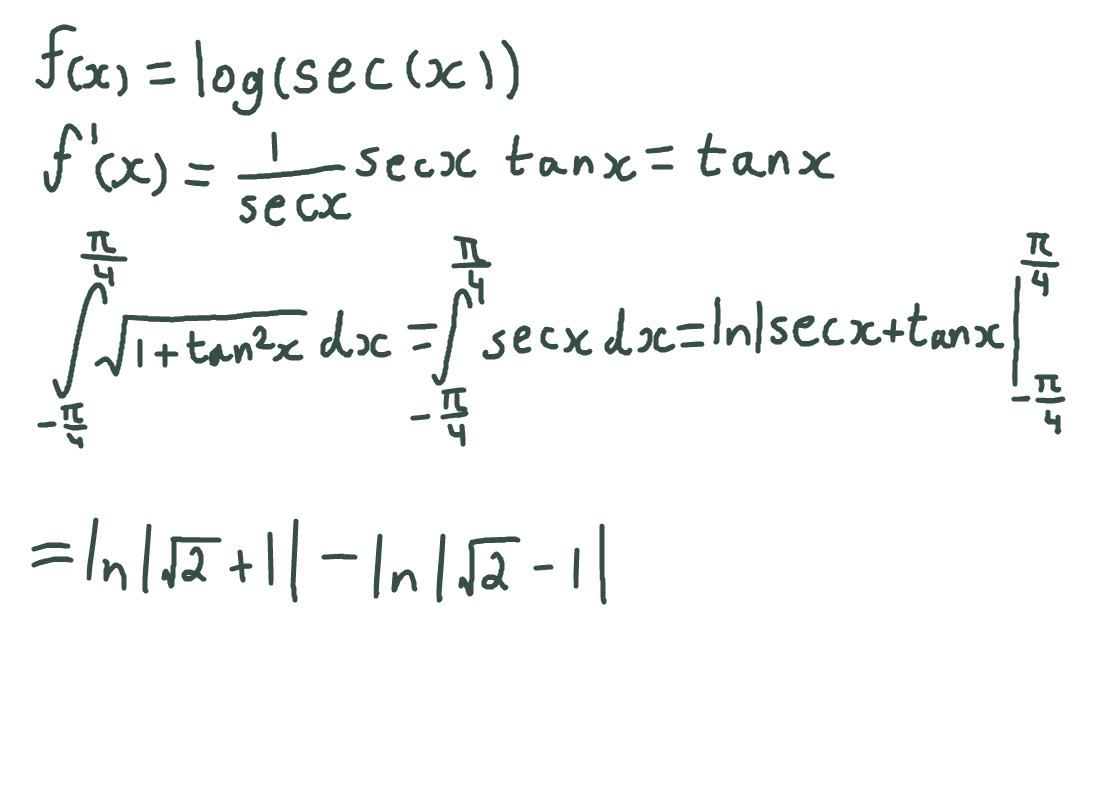 f(x) = log(sec(x))
f'(x) = \frac{1}{secx} secx tanx = tanx
\int_{-\frac{π}{4}}^{\frac{π}{4}} \sqrt{1+tan^2x} dx = \int_{-\frac{π}{4}}^{\frac{π}{4}} secx dx = ln|secx+tanx| |_{-\frac{π}{4}}^{\frac{π}{4}}
= ln|\sqrt{2}+1| - ln|\sqrt{2}-1|